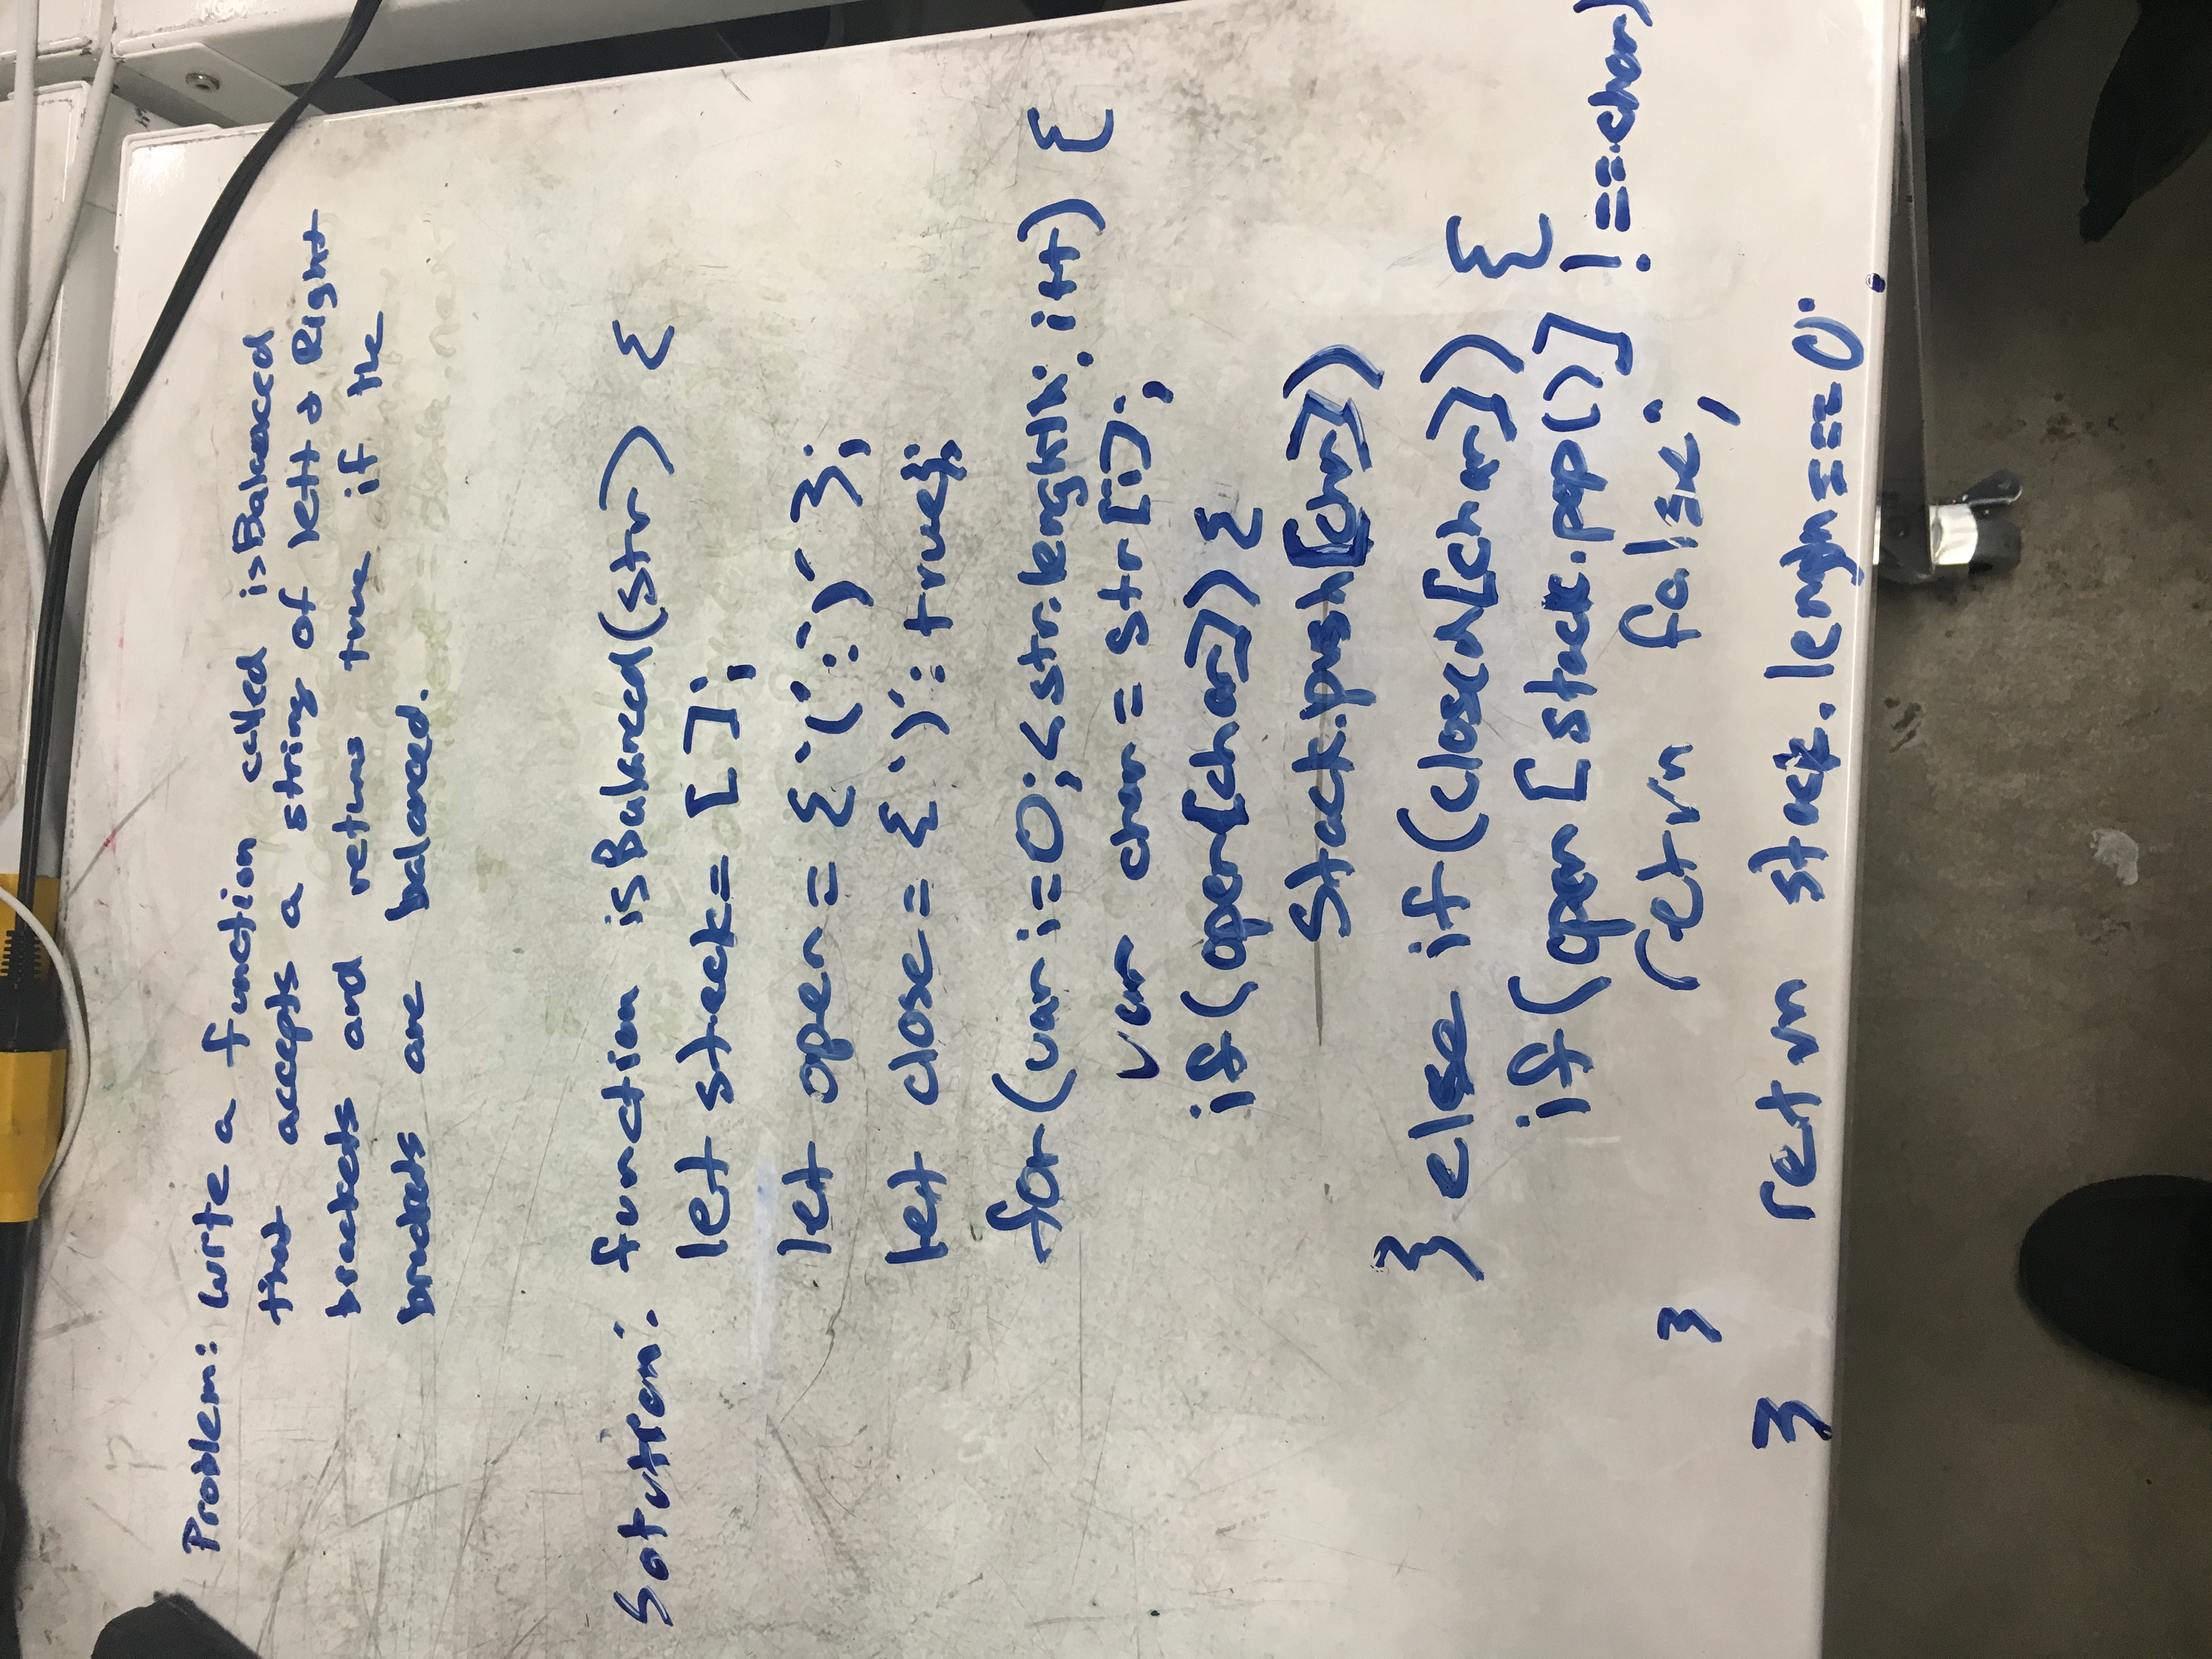 Problem: write a function called isBalanced
that accepts a string of left & Right
brackets and returns true if the
brackets are balanced.
Solution: function isBalanced(str) {
let stack = [ ];
let open = { '(' : ')' };
let close = { ')' : true};
for(var i=0; < str.length; i++) {
var char = str[i];
if(open[char]) {
Stack.push[char])
} else if(closed[char]) {
if(open[stack.pop()] !== char)
} return false;
} return stack.length === 0;